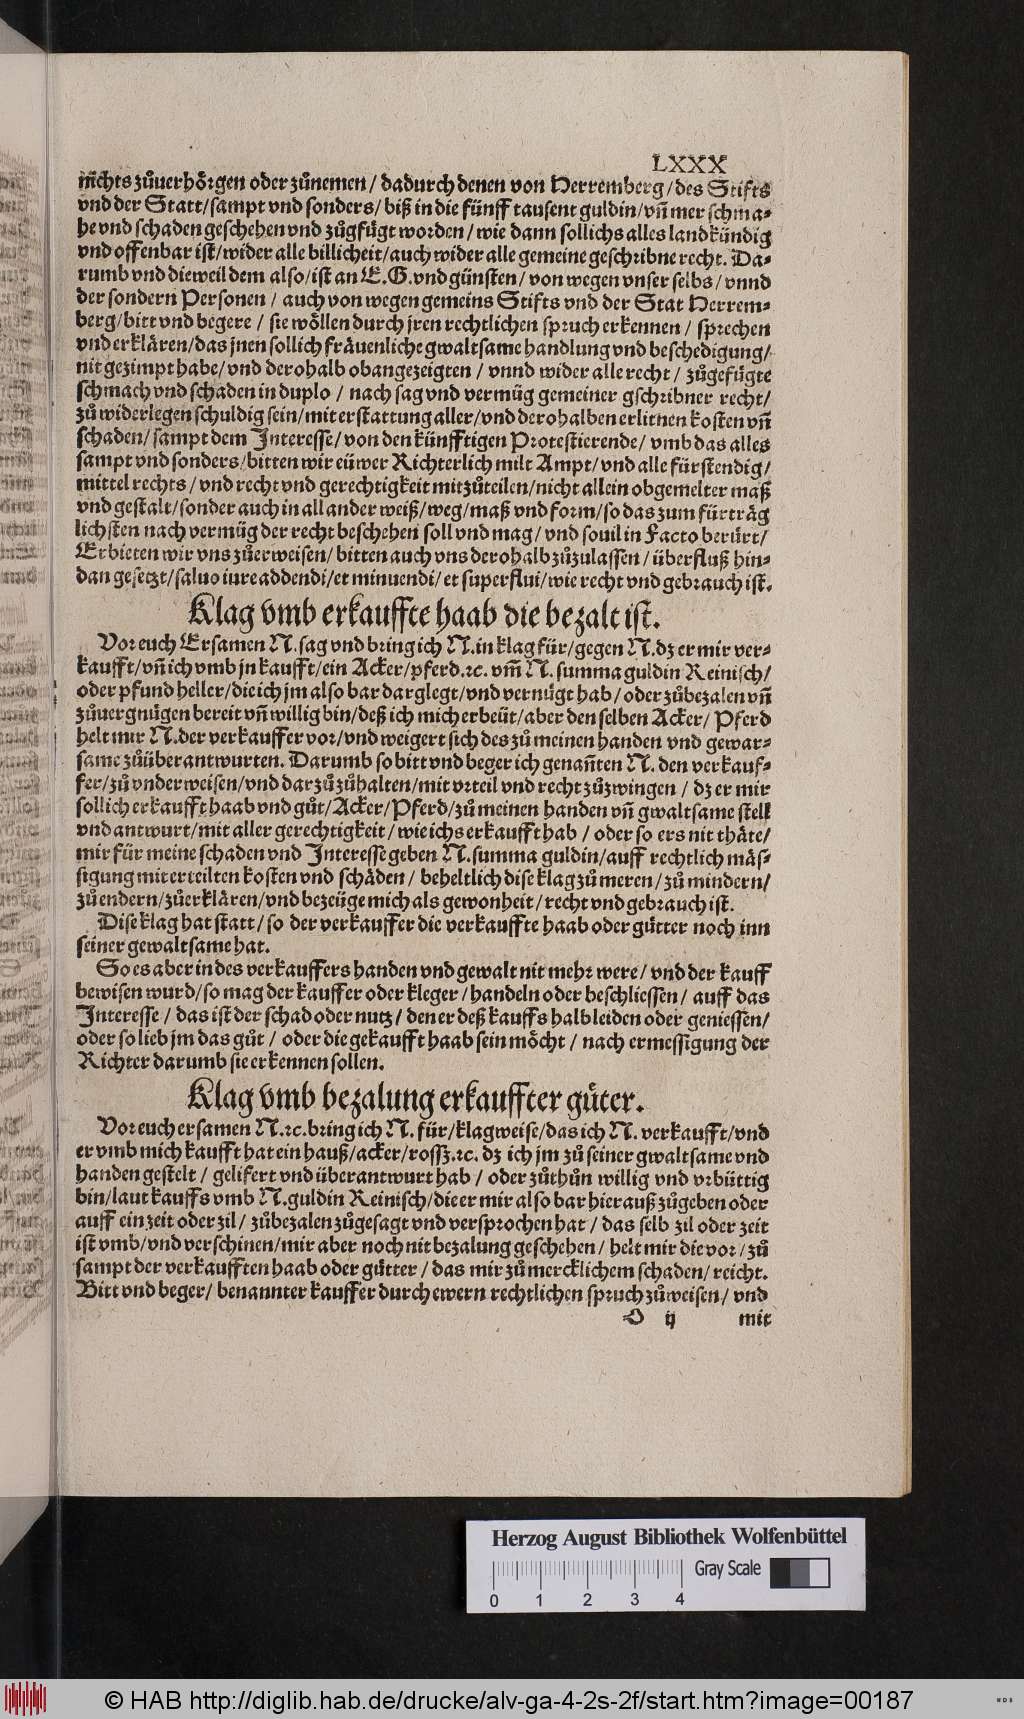 LXXX
nichts zůuerhörgen oder zůnemen / dadurch denen von Herremberg / des Stiffts
vnd der Statt / sampt vnd sonders / biß in die fünff tausent guldin / vn̄ mer schma⸗
he vnd schaden geschehen vnd zůgfügt worden / wie dann sollichs alles landkündig
vnd offenbar ist / wider alle billicheit / auch wider alle gemeine geschribne recht. Da⸗
rumb vnd dieweil dem also / ist an E. G. vnd günsten / von wegen vnser selbs / vnnd
der sondern Personen / auch von wegen gemeins Stiffts vnd der Stat Herrem⸗
berg / bitt vnd begere / sie wöllen durch jren rechtlichen spruch erkennen / sprechen
vnd erklären / das jnen sollich fräuenliche gwaltsame handlung vnd beschedigung /
nit gezimpt habe / vnd derohalb obangezeigten / vnnd wider alle recht / zůgefügte
schmach vnd schaden in duplo / nach sag vnd vermüg gemeiner gschribner recht /
zů widerlegen schuldig sein / mit erstattung aller / vnd derohalben erlitnen kosten vn̄
schaden / sampt dem Interesse / von den künfftigen Protestierende / vmb das alles
sampt vnd sonders / bitten wir eüwer Richterlich milt Ampt / vnd alle fürstendig /
mittel rechts / vnd recht vnd gerechtigkeit mitzůteilen / nicht allein obgemelter maß
vnd gestalt / sonder auch in all ander weiß / weg / maß vnd form / so das zum fürträg
lichsten nach vermüg der recht beschehen soll vnd mag / vnd souil in Facto berürt /
Erbieten wir vns zůerweisen / bitten auch vns derohalb zůzulassen / überfluß hin⸗
dan gesetzt / saluo iure addendi / et minuendi / et superflui / wie recht vnd gebrauch ist.
Klag vmb erkauffte haab die bezalt ist.
Vor euch Ersamen N. sag vnd bring ich N. in klag für / gegen N. dz er mir ver⸗
kaufft / vn̄ ich vmb jn kaufft / ein Acker / pferd. ꝛc. vm̄ N. summa guldin Reinisch /
oder pfund heller / die ich jm also bar darglegt / vnd vernügt hab / oder zůbezalen vn̄
zůuergnügen bereit vn̄ willig bin / deß ich mich erbeüt / aber den selben Acker / Pferd
helt mir N. der verkauffer vor / vnd weigert sich des zů meinen handen vnd gewar⸗
same zůüberantwurten. Darumb so bitt vnd beger ich genan̄ten N. den verkauf⸗
fer / zů vnderweisen / vnd darzů zůhalten / mit vrteil vnd recht zůzwingen / dz er mir
sollich erkaufft haab vnd gůt / Acker / Pferd / zů meinen handen vn̄ gwaltsame stell
vnd antwurt / mit aller gerechtigkeit / wie ichs erkaufft hab / oder so ers nit thäte /
mir für meine schaden vnd Interesse geben N. summa guldin / auff rechtlich mäs⸗
sigung mit erteilten kosten vnd schäden / beheltlich dise klag zů meren / zů mindern /
zů endern / zůerklären / vnd bezeüge mich als gewonheit / recht vnd gebrauch ist.
Dise klag hat statt / so der verkauffer die verkauffte haab oder gütter noch inn
seiner gewaltsame hat.
So es aber in des verkauffers handen vnd gewalt nit mehr were / vnd der kauff
bewisen wurd / so mag der kauffer oder kleger / handeln oder beschliessen / auff das
Interesse / das ist der schad oder nutz / den er deß kauffs halb leiden oder geniessen /
oder so lieb jm das gůt / oder die gekaufft haab sein möcht / nach ermessigung der
Richter darumb sie erkennen sollen.
Klag vmb bezalung erkauffter güter.
Vor euch ersamen N. ꝛc. bring ich N. für / klagweise / das ich N. verkaufft / vnd
er vmb mich kaufft hat ein hauß / acker / rossz. ꝛc. dz ich jm zů seiner gwaltsame vnd
handen gestelt / gelifert vnd überantwurt hab / oder zůthůn willig vnd vrbüttig
bin / laut kauffs vmb N. guldin Reinisch / die er mir also bar hierauß zůgeben oder
auff ein zeit oder zil / zůbezalen zůgesagt vnd versprochen hat / das selb zil oder zeit
ist vmb / vnd verschinen / mir aber noch nit bezalung geschehen / helt mir die vor / zů
sampt der verkaufften haab oder gütter / das mir zů mercklichem schaden / reicht.
Bitt vnd beger / benannter kauffer durch ewern rechtlichen spruch zů weisen / vnd
O ij mit
Herzog August Bibliothek Wolfenbüttel
Gray Scale
0 1 2 3 4
© HAB http://diglib.hab.de/drucke/alv-ga-4-2s-2f/start.htm?image=00187